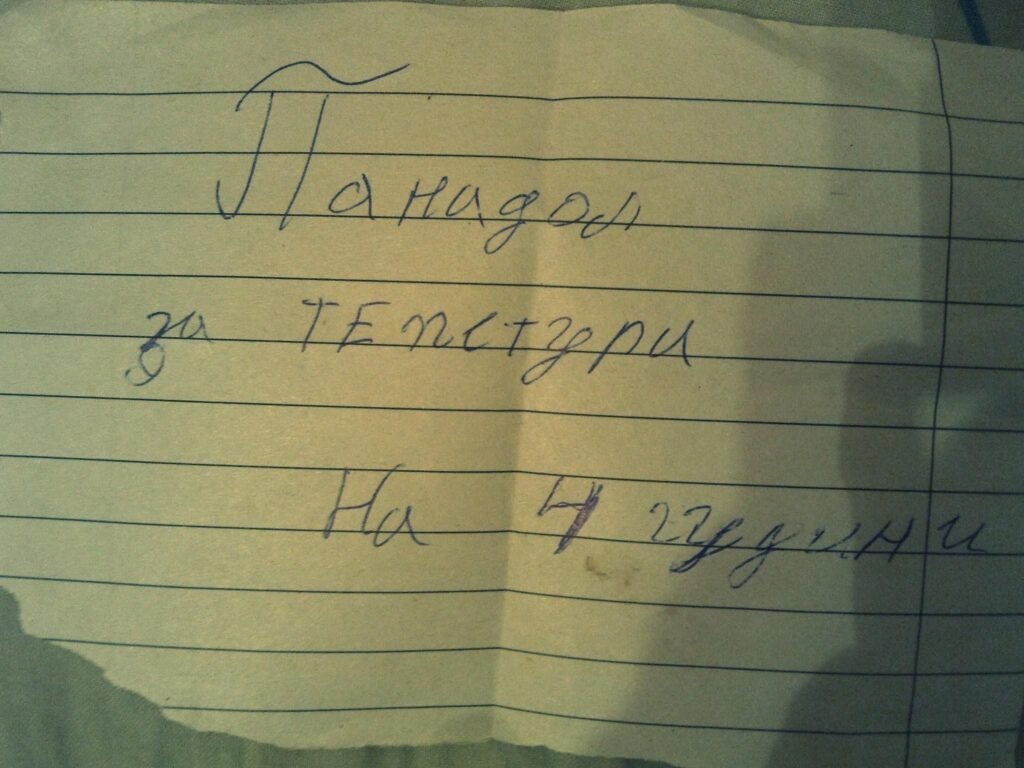 Панадол
за ТЕПСТУРИ
На 4 гудини